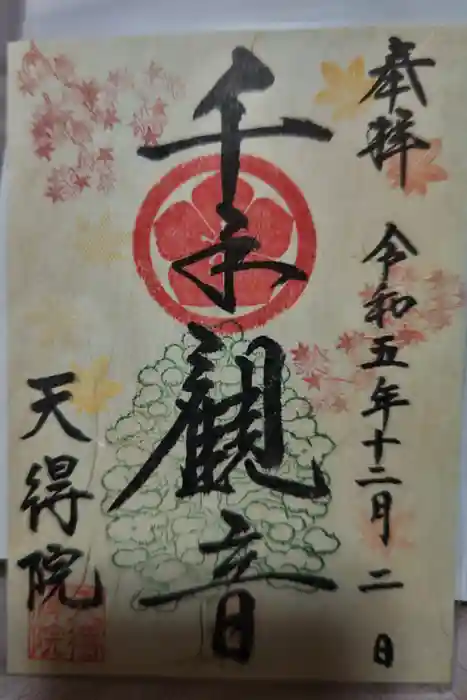 奉拝 令和五年十二月二日
千手観音
天得院